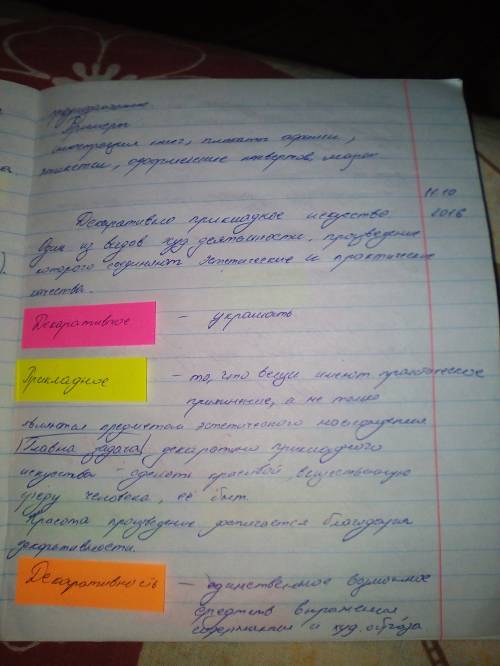 Примеры
иллюстрация книг, плакаты афиши,
этикетки, оформление конвертов, марок
11.10
2016
Декаративно прикладное искусство
Один из видов худ деятельности, прозведение
которого соединяют эстетические и практические
качества.
Декаративное – украшать
Прикладное – то, что вещи имеют практическое
применение, а не только
являются предметом эстетического наслождения
Главна задача декаротивно прикладного
искусства – сделать красивой вещественную
среду человека, её быт.
Красота прозведение достигается благодаря
декоративности.
Декаративность – единственное возможное
средств выражения
содержания и худ. образа